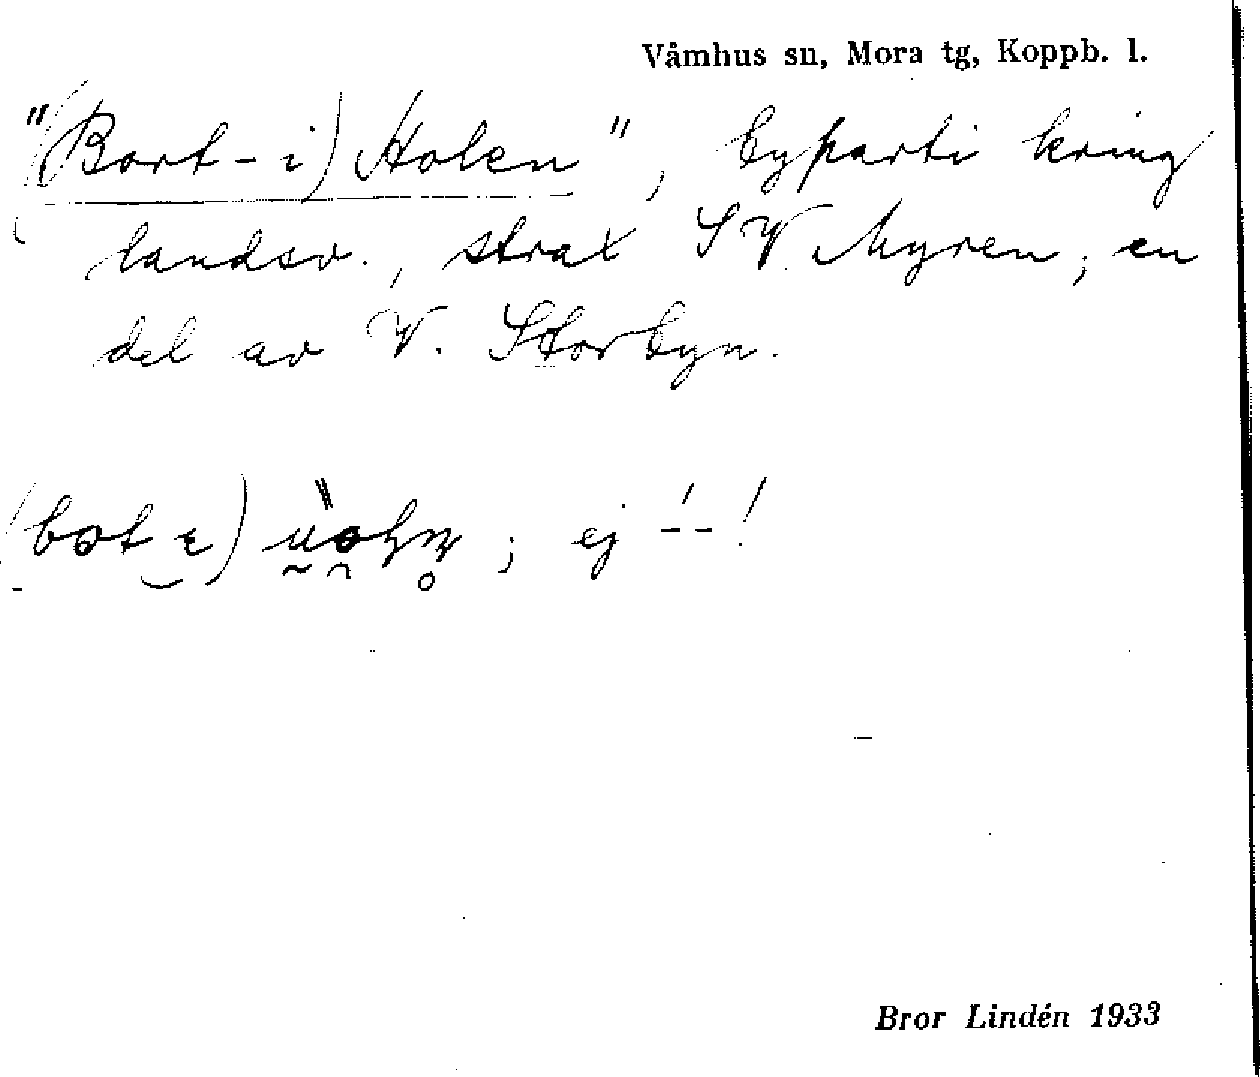 Våmhus sn, Mora tg, Koppb. l.
"(Bort-i) Holen", byparti kring
landsv., strax SV Myren; en
del av V. Storbyn.
; ej -́-!
Bror Lindén 1933